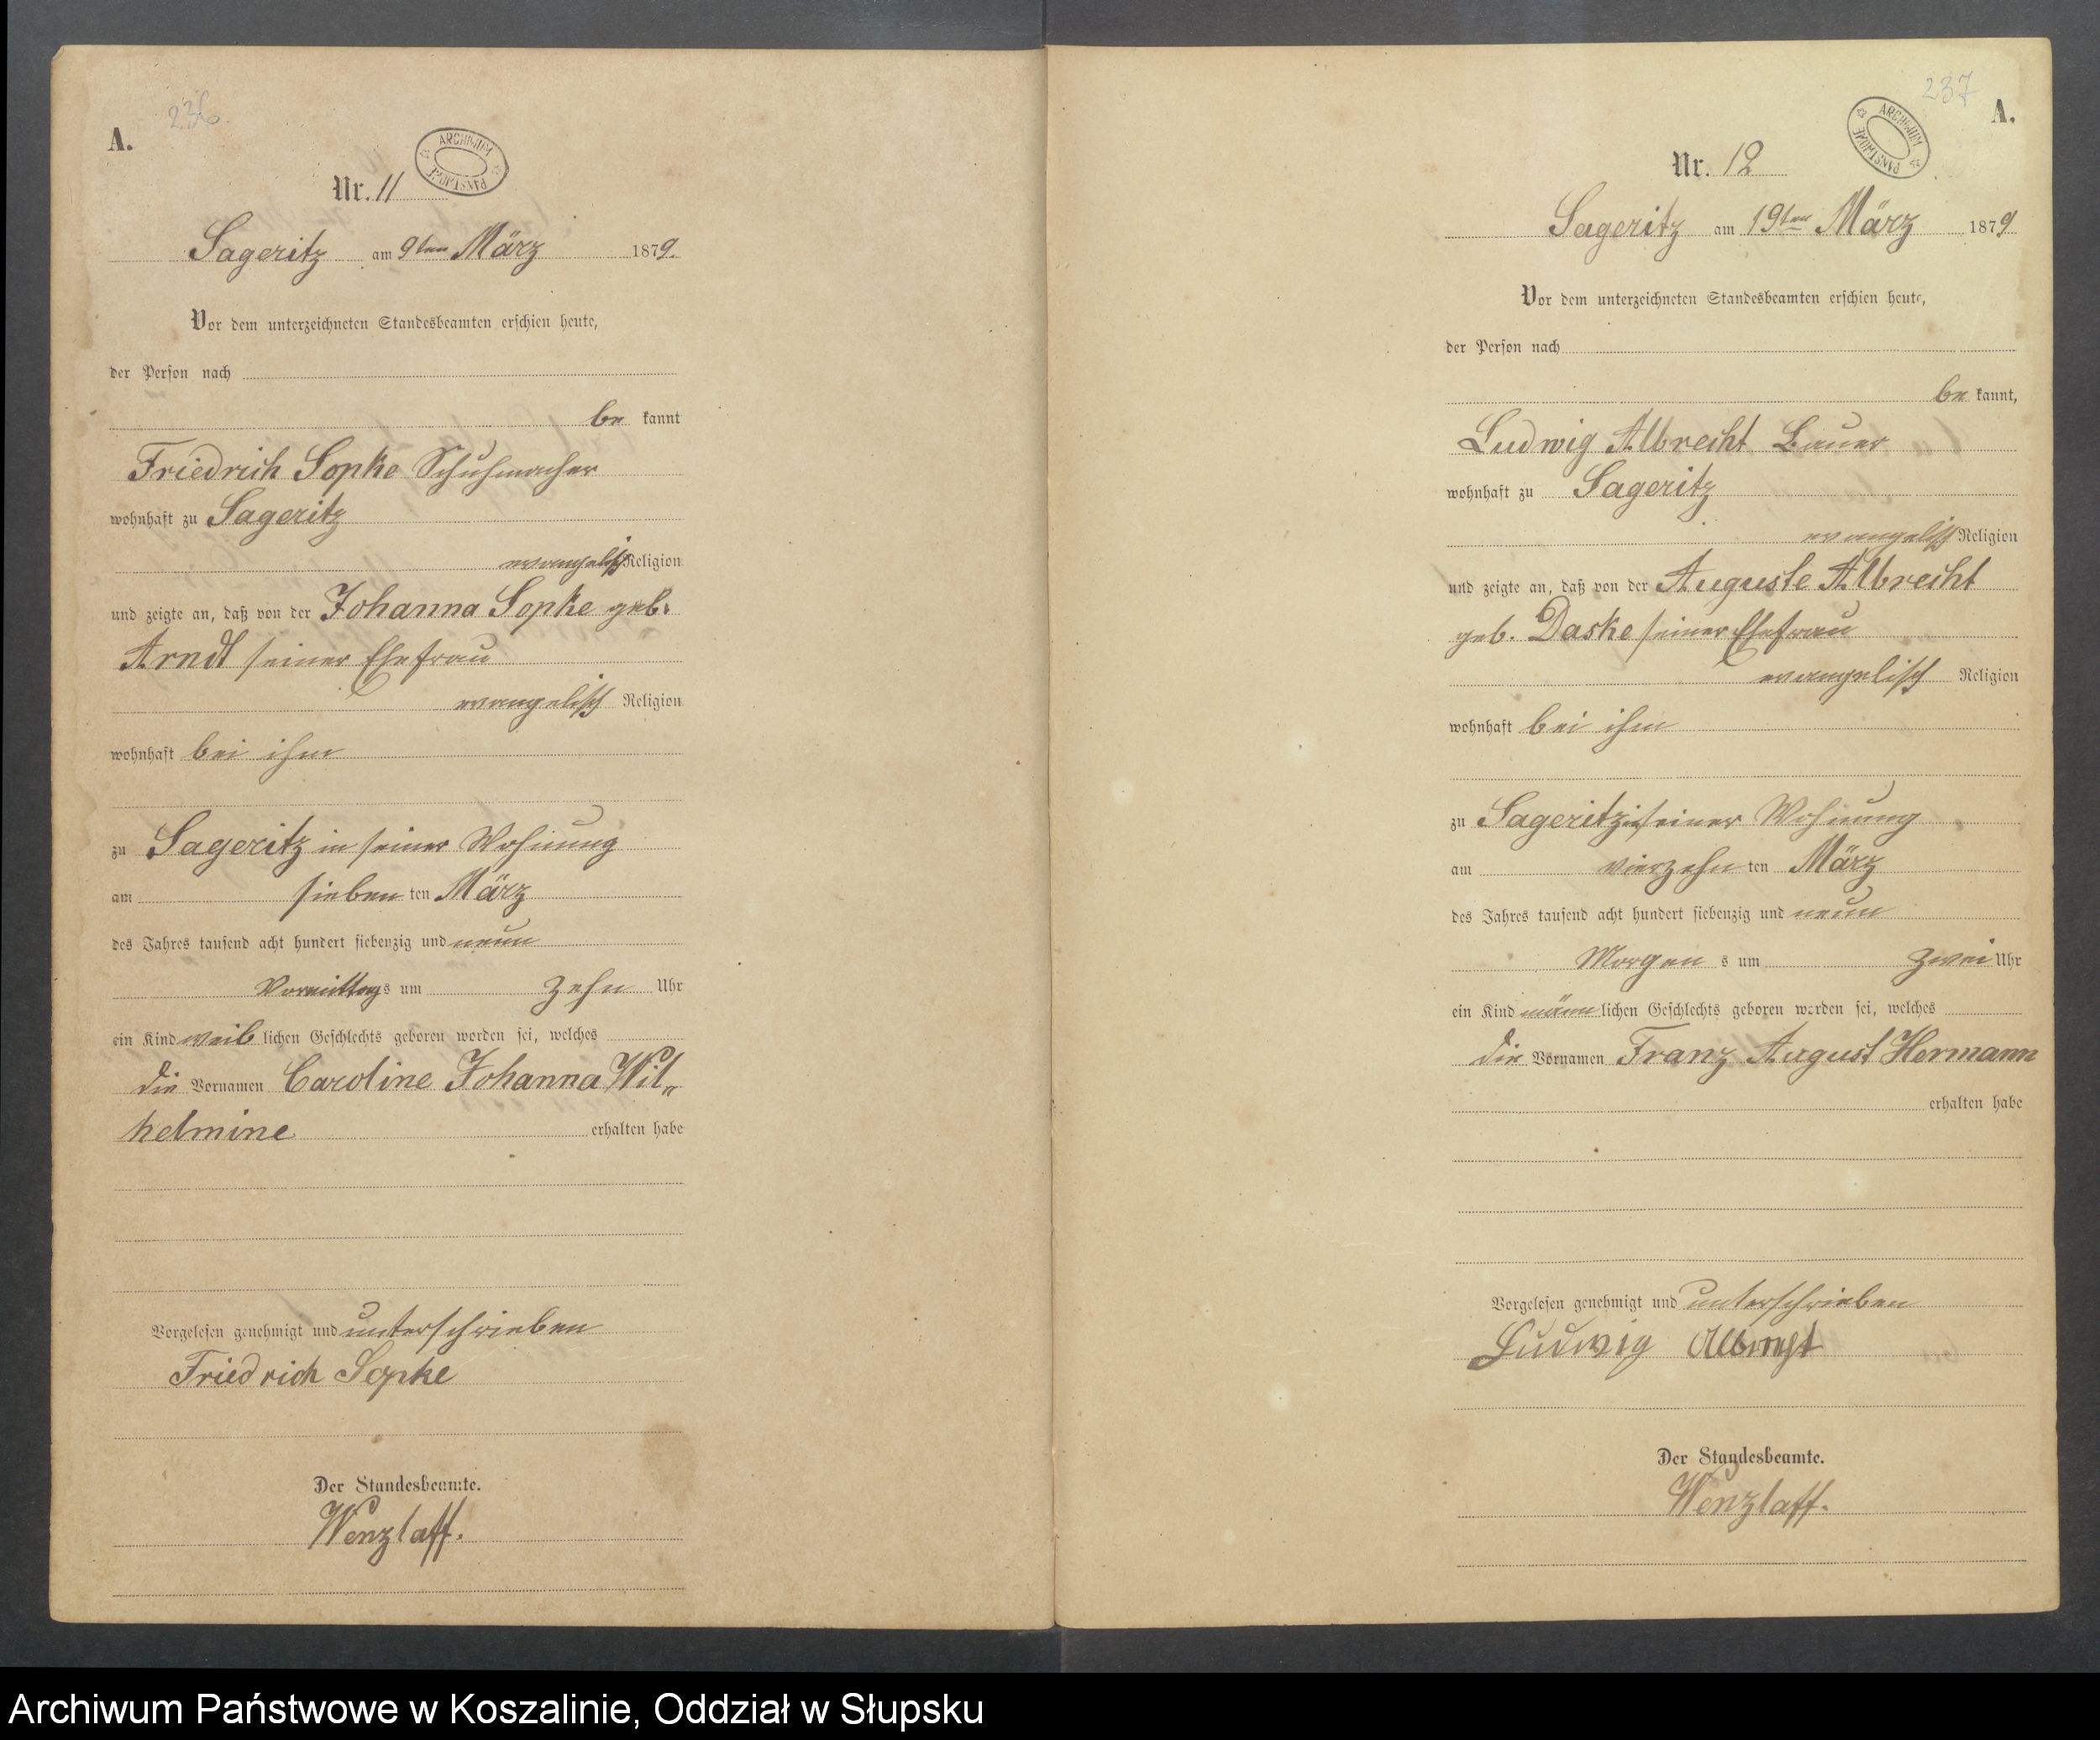 236
A.
ARCHIWUM PAŃSTWOWE
Nr. 11
Sageritz am 9ten März 1879.
Vor dem unterzeichneten Standesbeamten erschien heute,
der Person nach
be kannt
Friedrich Sopke Schuhmacher
wohnhaft zu Sageritz
evangelisch Religion
und zeigte an, daß von der Johanna Sopke geb.
Arndt seiner Ehefrau
evangelisch Religion
wohnhaft bei ihm
zu Sageritz in seiner Wohnung
am sieben ten März
des Jahres tausend acht hundert siebenzig und neun
Vormittag s um zehn Uhr
ein Kind weib lichen Geschlechts geboren worden sei, welches
die Vornamen Caroline Johanna Wil„
helmine erhalten habe
Vorgelesen genehmigt und unterschrieben
Friedrich Sopke
Der Standesbeamte.
Wenzlaff.
237
A.
ARCHIWUM PAŃSTWOWE
Nr. 12
Sageritz am 19ten März 1879
Vor dem unterzeichneten Standesbeamten erschien heute,
der Person nach
be kannt,
Ludwig Albrecht Bauer
wohnhaft zu Sageritz
evangelisch Religion
und zeigte an, daß von der Auguste Albrecht
geb. Daske seiner Ehefrau
evangelisch Religion
wohnhaft bei ihm
zu Sageritz in seiner Wohnung
am vierzehn ten März
des Jahres tausend acht hundert siebenzig und neun
Morgen s um zwei Uhr
ein Kind männ lichen Geschlechts geboren worden sei, welches
die Vornamen Franz August Hermann
erhalten habe
Vorgelesen genehmigt und unterschrieben
Ludwig Albrecht
Der Standesbeamte.
Wenzlaff.
Archiwum Państwowe w Koszalinie, Oddział w Słupsku